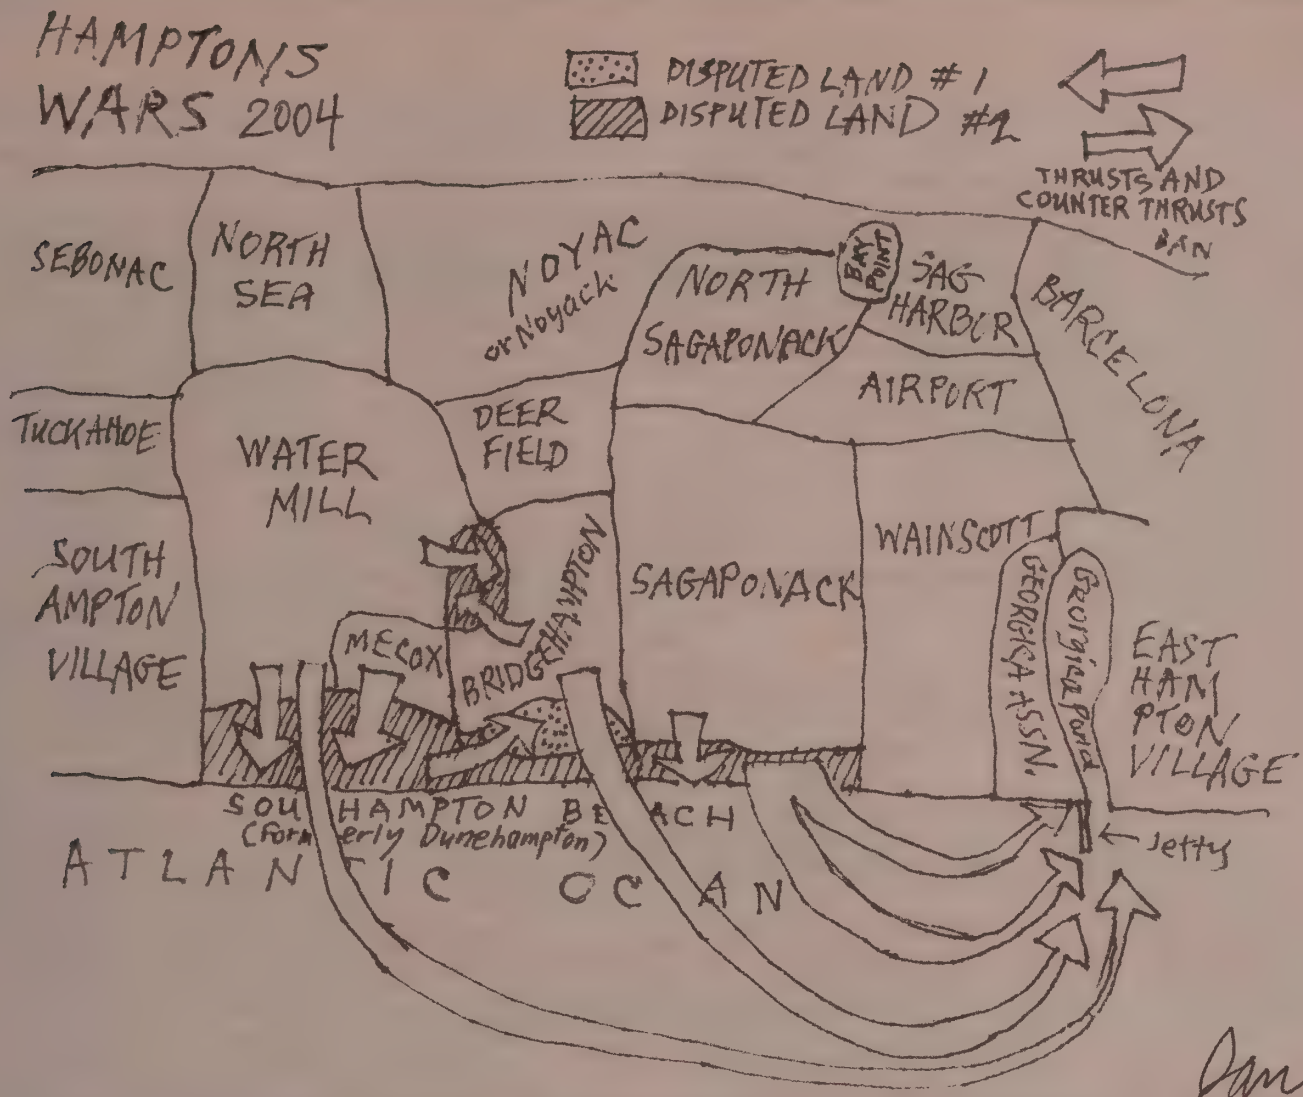 HAMPTONS
WARS 2004
DISPUTED LAND #1
DISPUTED LAND #2
THRUSTS AND
COUNTER THRUSTS
SEBONAC
NORTH
SEA
NOYAC
or Noyack
NORTH
SAGAPONACK
BAY
POINT
SAG
HARBOR
BARCELONA
TUCKAHOE
WATER
MILL
DEER
FIELD
AIRPORT
SOUTH
AMPTON
VILLAGE
MECOX
BRIDGEHAMPTON
SAGAPONACK
WAINSCOTT
GEORGICA ASSN.
Georgica Pond
EAST
HAM
PTON
VILLAGE
SOU HAMPTON BE ACH
(Form erly Dunehampton)
ATLANTIC OC AN
← Jetty
Dan